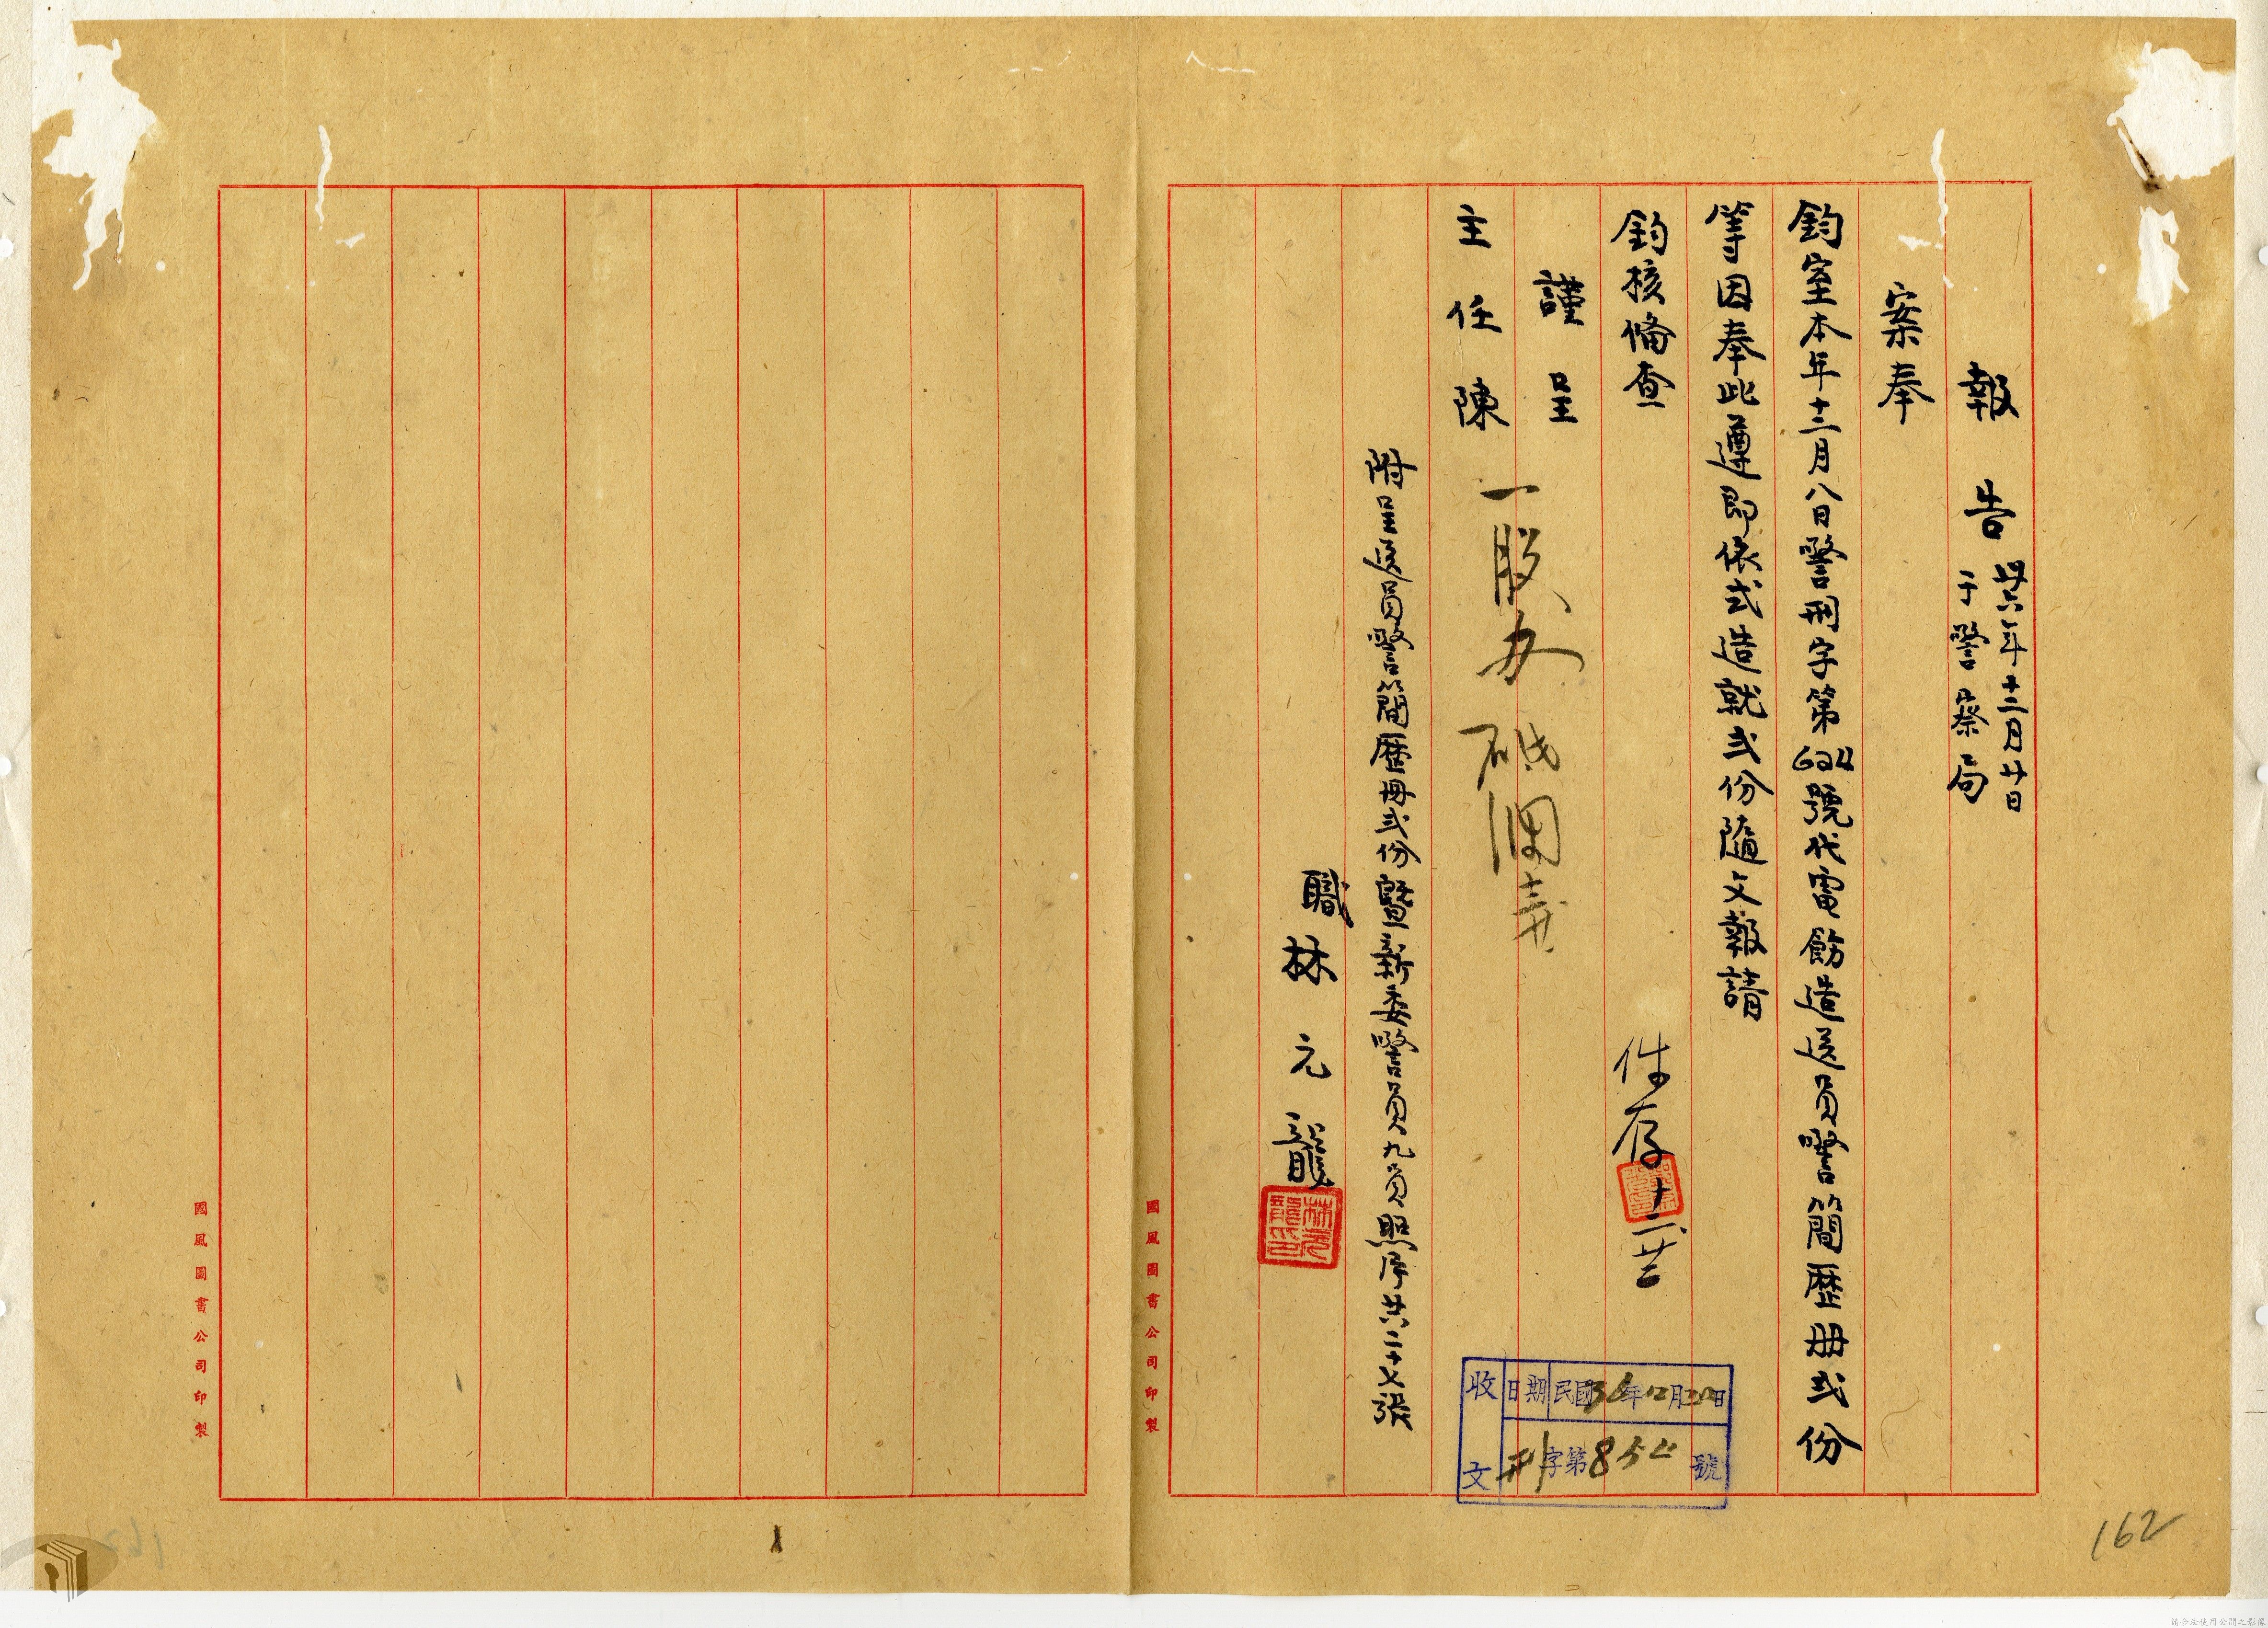 報告 卅六年十二月廿日
于警察局
案奉
鈞室本年十二月八日警刑字第632號代電飭造送員警簡歷册弍份
等因奉此遵即依式造就弍份隨文報請
鈞核備查
謹呈
主任陳
附呈送員警簡歷册弍份暨新委警員九員照片共二十七張
職林元龍
林元龍印
一股办
件存 十二廿三
收文 日期 民國36年12月 日
刑字第854號
國風圖書公司印製
國風圖書公司印製
162
請合法使用公開之影像